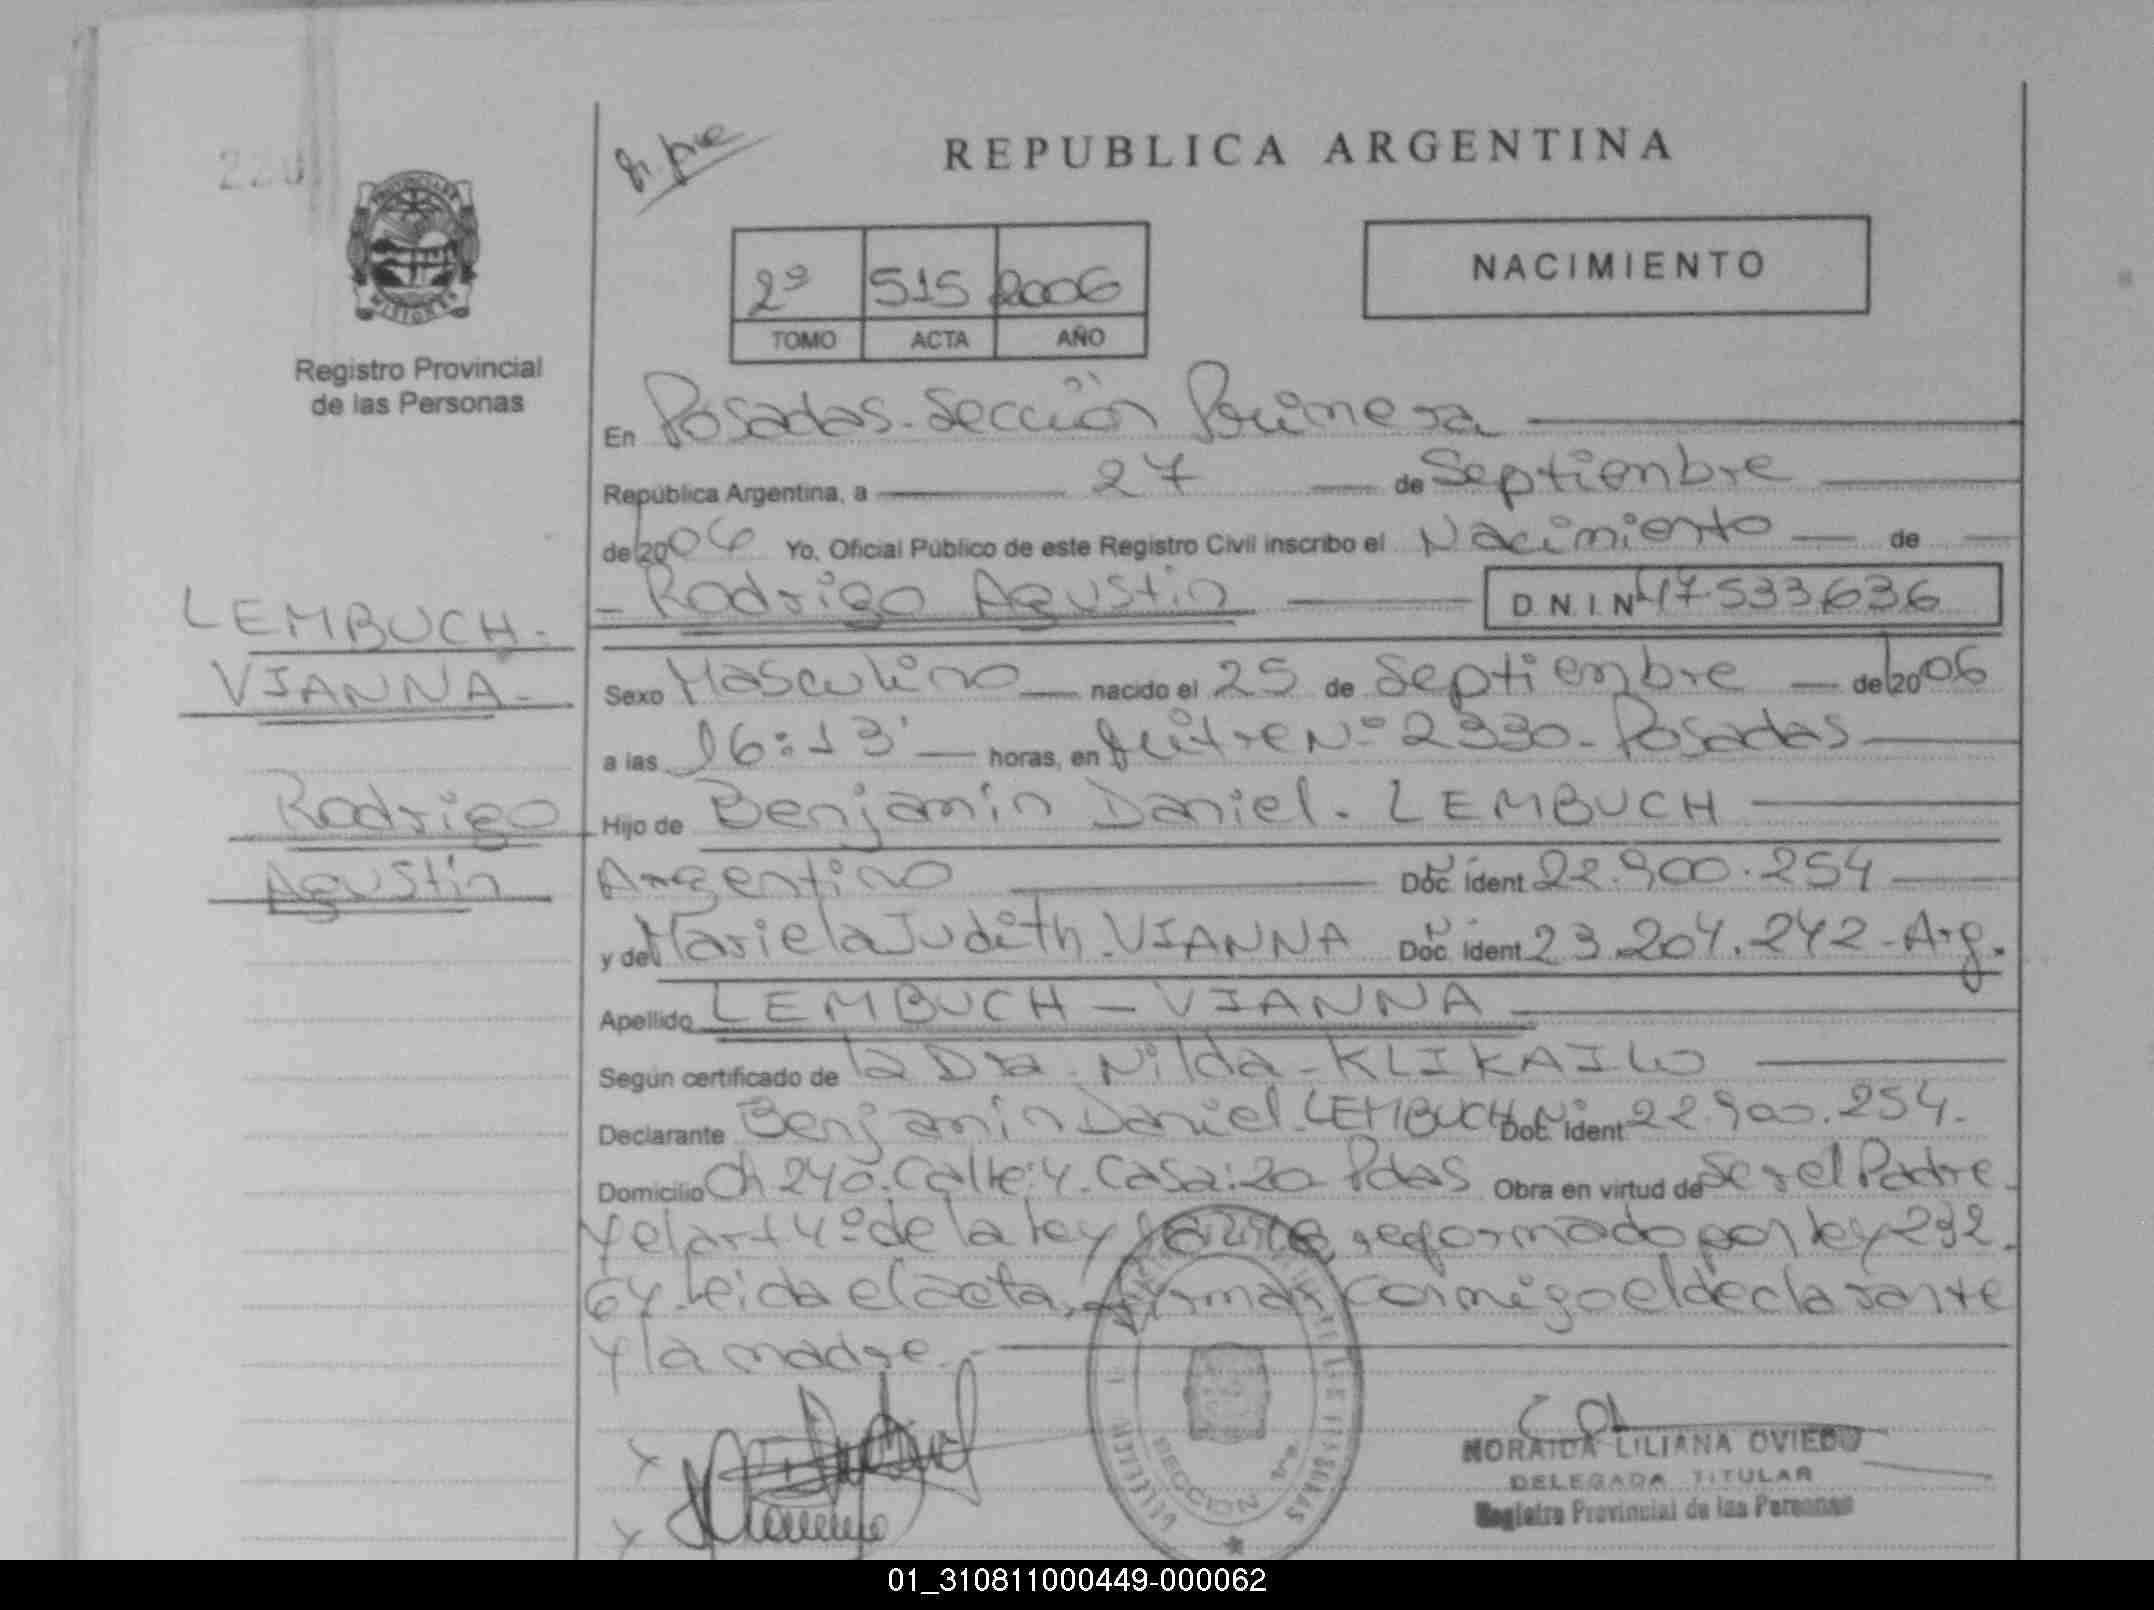 220
REPUBLICA ARGENTINA
2º 515 2006
TOMO ACTA AÑO
NACIMIENTO
MISIONES
Registro Provincial
de las Personas
En Posadas. Sección Primera
República Argentina, a 27 de Septiembre
de 2006 Yo, Oficial Público de este Registro Civil inscribo el Nacimiento de
Rodrigo Agustin D N I Nº 47.533.636
LEMBUCH-
VIANNA-
Rodrigo
Agustin
Sexo Masculino nacido el 25 de Septiembre de 2006
a las 16:13' horas, en Mitre Nº 2330- Posadas
Hijo de Benjamin Daniel. LEMBUCH
Argentino Doc. ident 22.900.254
y de Mariela Judith. VIANNA Doc. ident 23.204.242- Arg.
Apellido LEMBUCH - VIANNA
Según certificado de la Dra. Nilda- KLIKAILO
Declarante Benjamin Daniel. LEMBUCH Doc. ident 22.900.254.
Domicilio Ch 240. Calle: 4. Casa: 20 Pdas Obra en virtud de Ser el Padre
y el art 4º de la ley reformado por ley 232
64. Leida el acta, firman conmigo el declarante
y la madre.
SECCION 1ª
NORAIDA LILIANA OVIEDO
DELEGADA TITULAR
Registro Provincial de las Personas
01_310811000449-000062